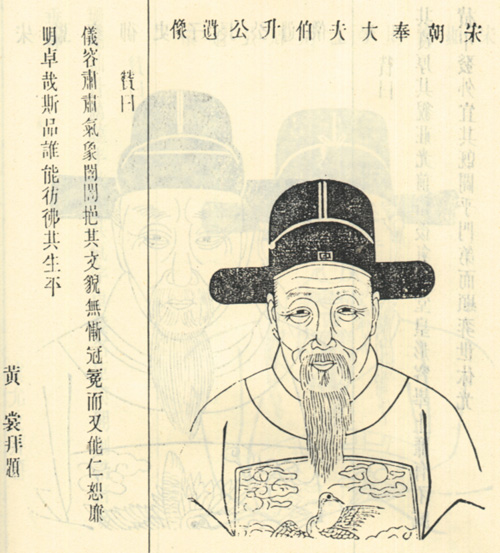 宋朝奉大夫伯升公遺像
贊曰
儀容肅肅氣象誾誾挹其文貌無慚冠冕而又能仁恕廉
明卓哉斯品誰能彷彿其生平
黃裳拜題